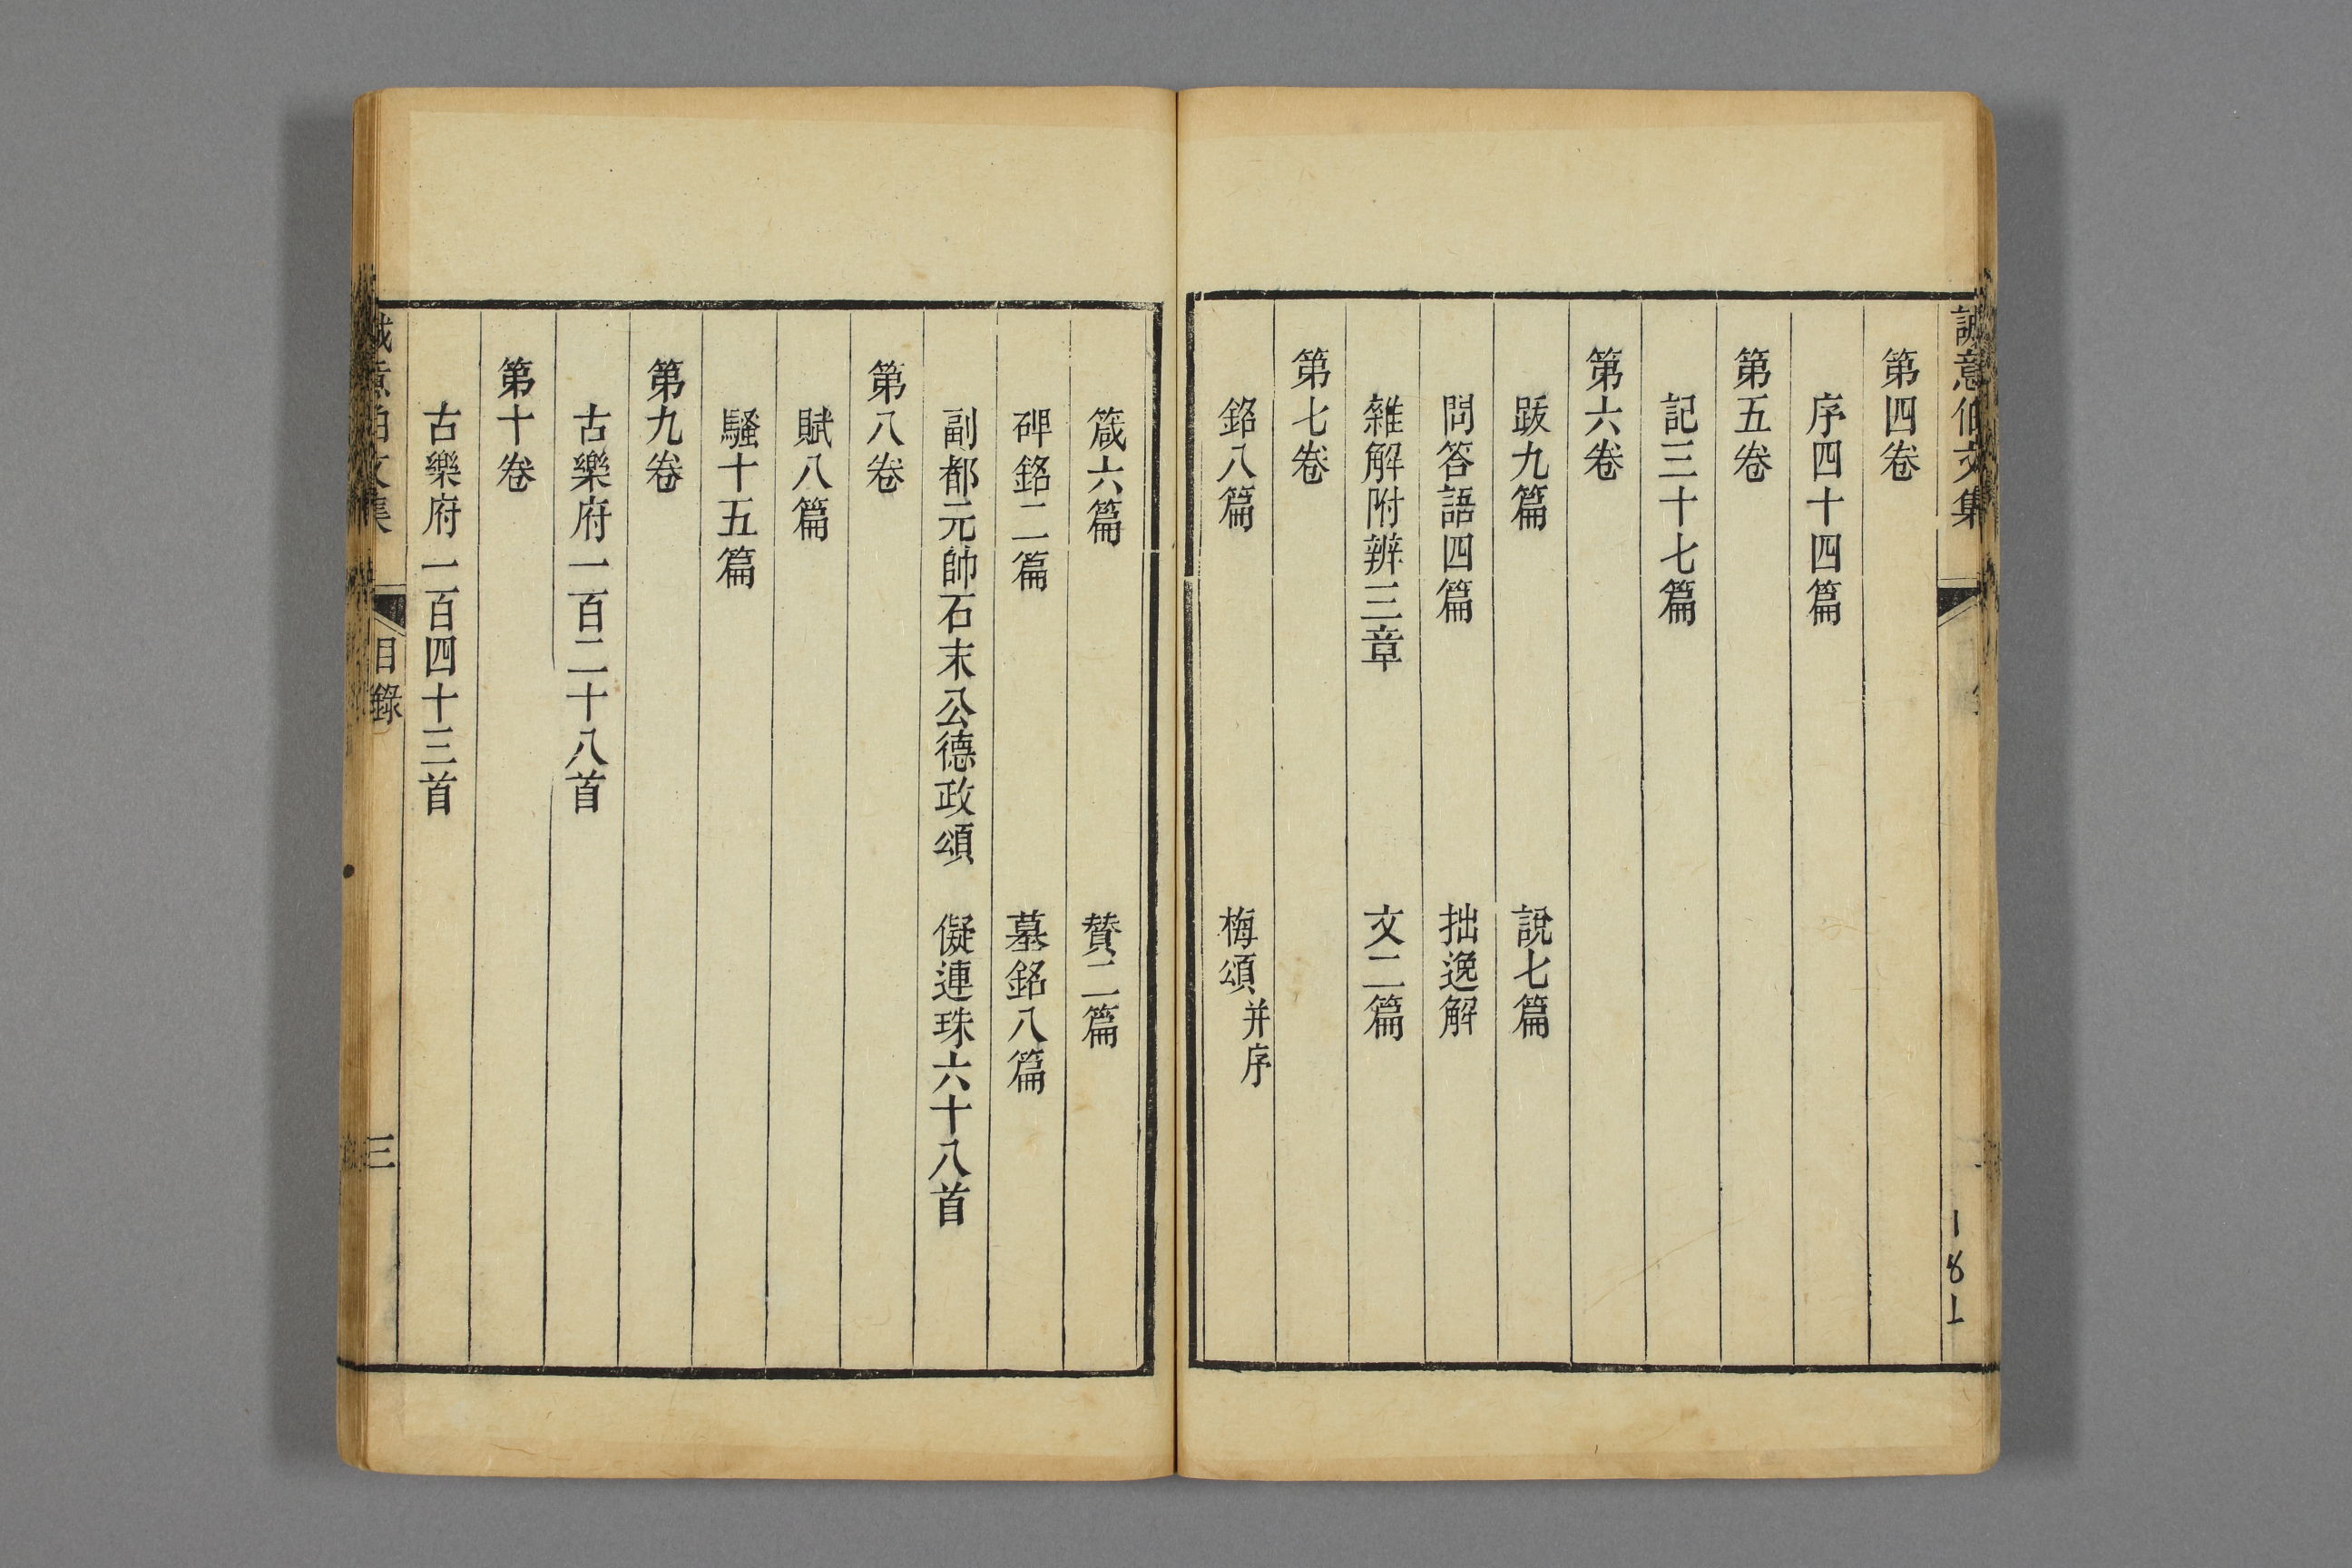 誠意伯文集
181
第四卷
序四十四篇
第五卷
記三十七篇
第六卷
跋九篇 說七篇
問答語四篇 拙逸解
雜解附辨三章 文二篇
第七卷
銘八篇 梅頌并序
箴六篇 贊二篇
碑銘二篇 墓銘八篇
副都元帥石末公德政頌 儗連珠六十八首
第八卷
賦八篇
騷十五篇
第九卷
古樂府一百二十八首
第十卷
古樂府一百四十三首
誠意伯文集 目錄 三